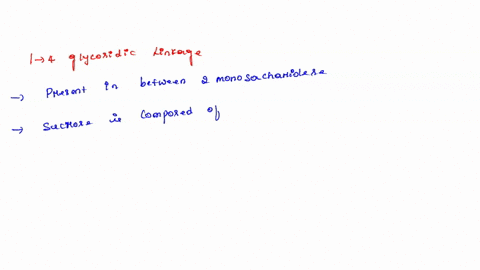 1→4 glycosidic Linkage
→ Present in between 2 monosacharidese
→ Sucrose is Composed of